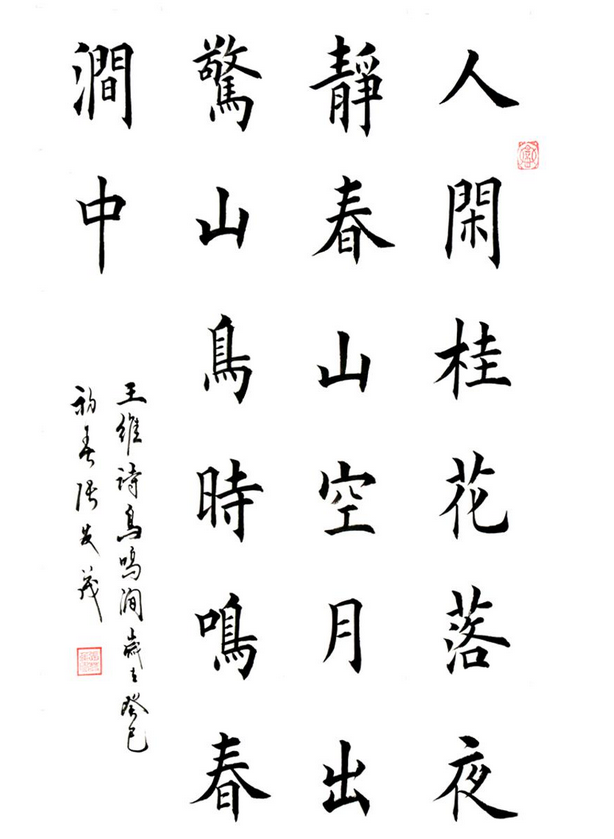 人閑桂花落夜
靜春山空月出
驚山鳥時鳴春
澗中
王維詩鳥鳴澗歲在癸巳
初春張發茂